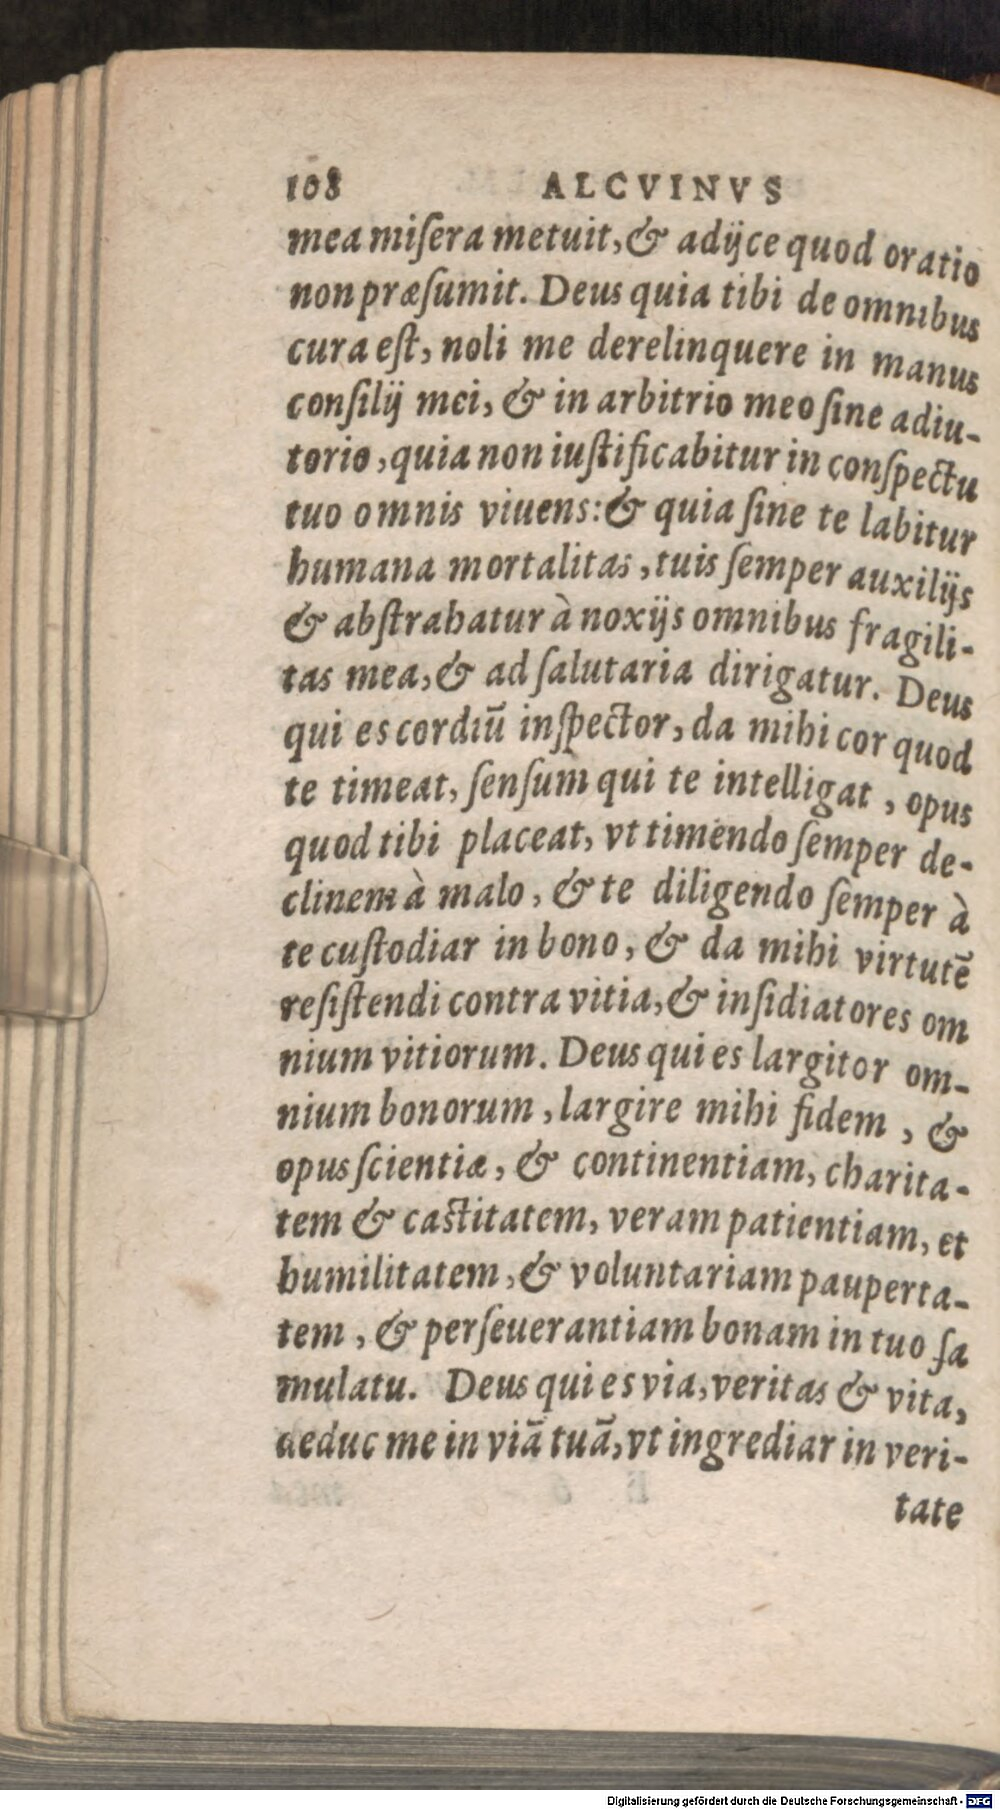 108 ALCVINVS
mea miſera metuit, & adijce quod oratio
non præſumit. Deus quia tibi de omnibus
cura eſt, noli me derelinquere in manus
conſilij mei, & in arbitrio meo ſine adiu-
torio, quia non iuſtificabitur in conſpectu
tuo omnis viuens: & quia ſine te labitur
humana mortalitas, tuis ſemper auxilijs
& abſtrahatur à noxijs omnibus fragili-
tas mea, & ad ſalutaria dirigatur. Deus
qui es cordiū inſpector, da mihi cor quod
te timeat, ſenſum qui te intelligat, opus
quod tibi placeat, vt timendo ſemper de-
clinem à malo, & te diligendo ſemper à
te cuſtodiar in bono, & da mihi virtutē
reſiſtendi contra vitia, & inſidiatores om
nium vitiorum. Deus qui es largitor om-
nium bonorum, largire mihi fidem, &
opus ſcientiæ, & continentiam, charita-
tem & caſtitatem, veram patientiam, et
humilitatem, & voluntariam pauperta-
tem, & perſeuerantiam bonam in tuo fa
mulatu. Deus qui es via, veritas & vita,
deduc me in viā tuā, vt ingrediar in veri-
tate
Digitalisierung gefördert durch die Deutsche Forschungsgemeinschaft - DFG